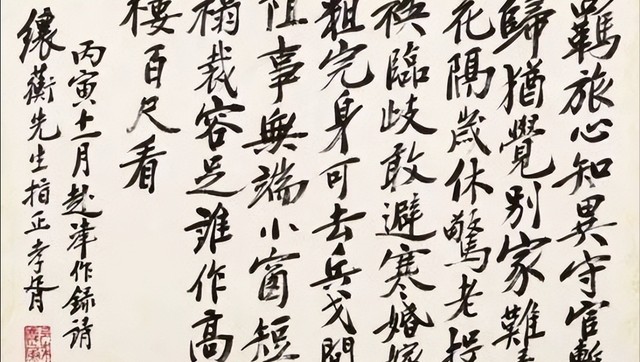 羈旅心知異守官暫
歸猶覺別家難
花隔歲休驚老投
袂臨歧敢避寒婚嫁
粗完身可去兵戈間
阻事無端小窗短
榻裁容足誰作高
樓百尺看
丙寅十一月赴津作錄請
纕蘅先生指正孝胥